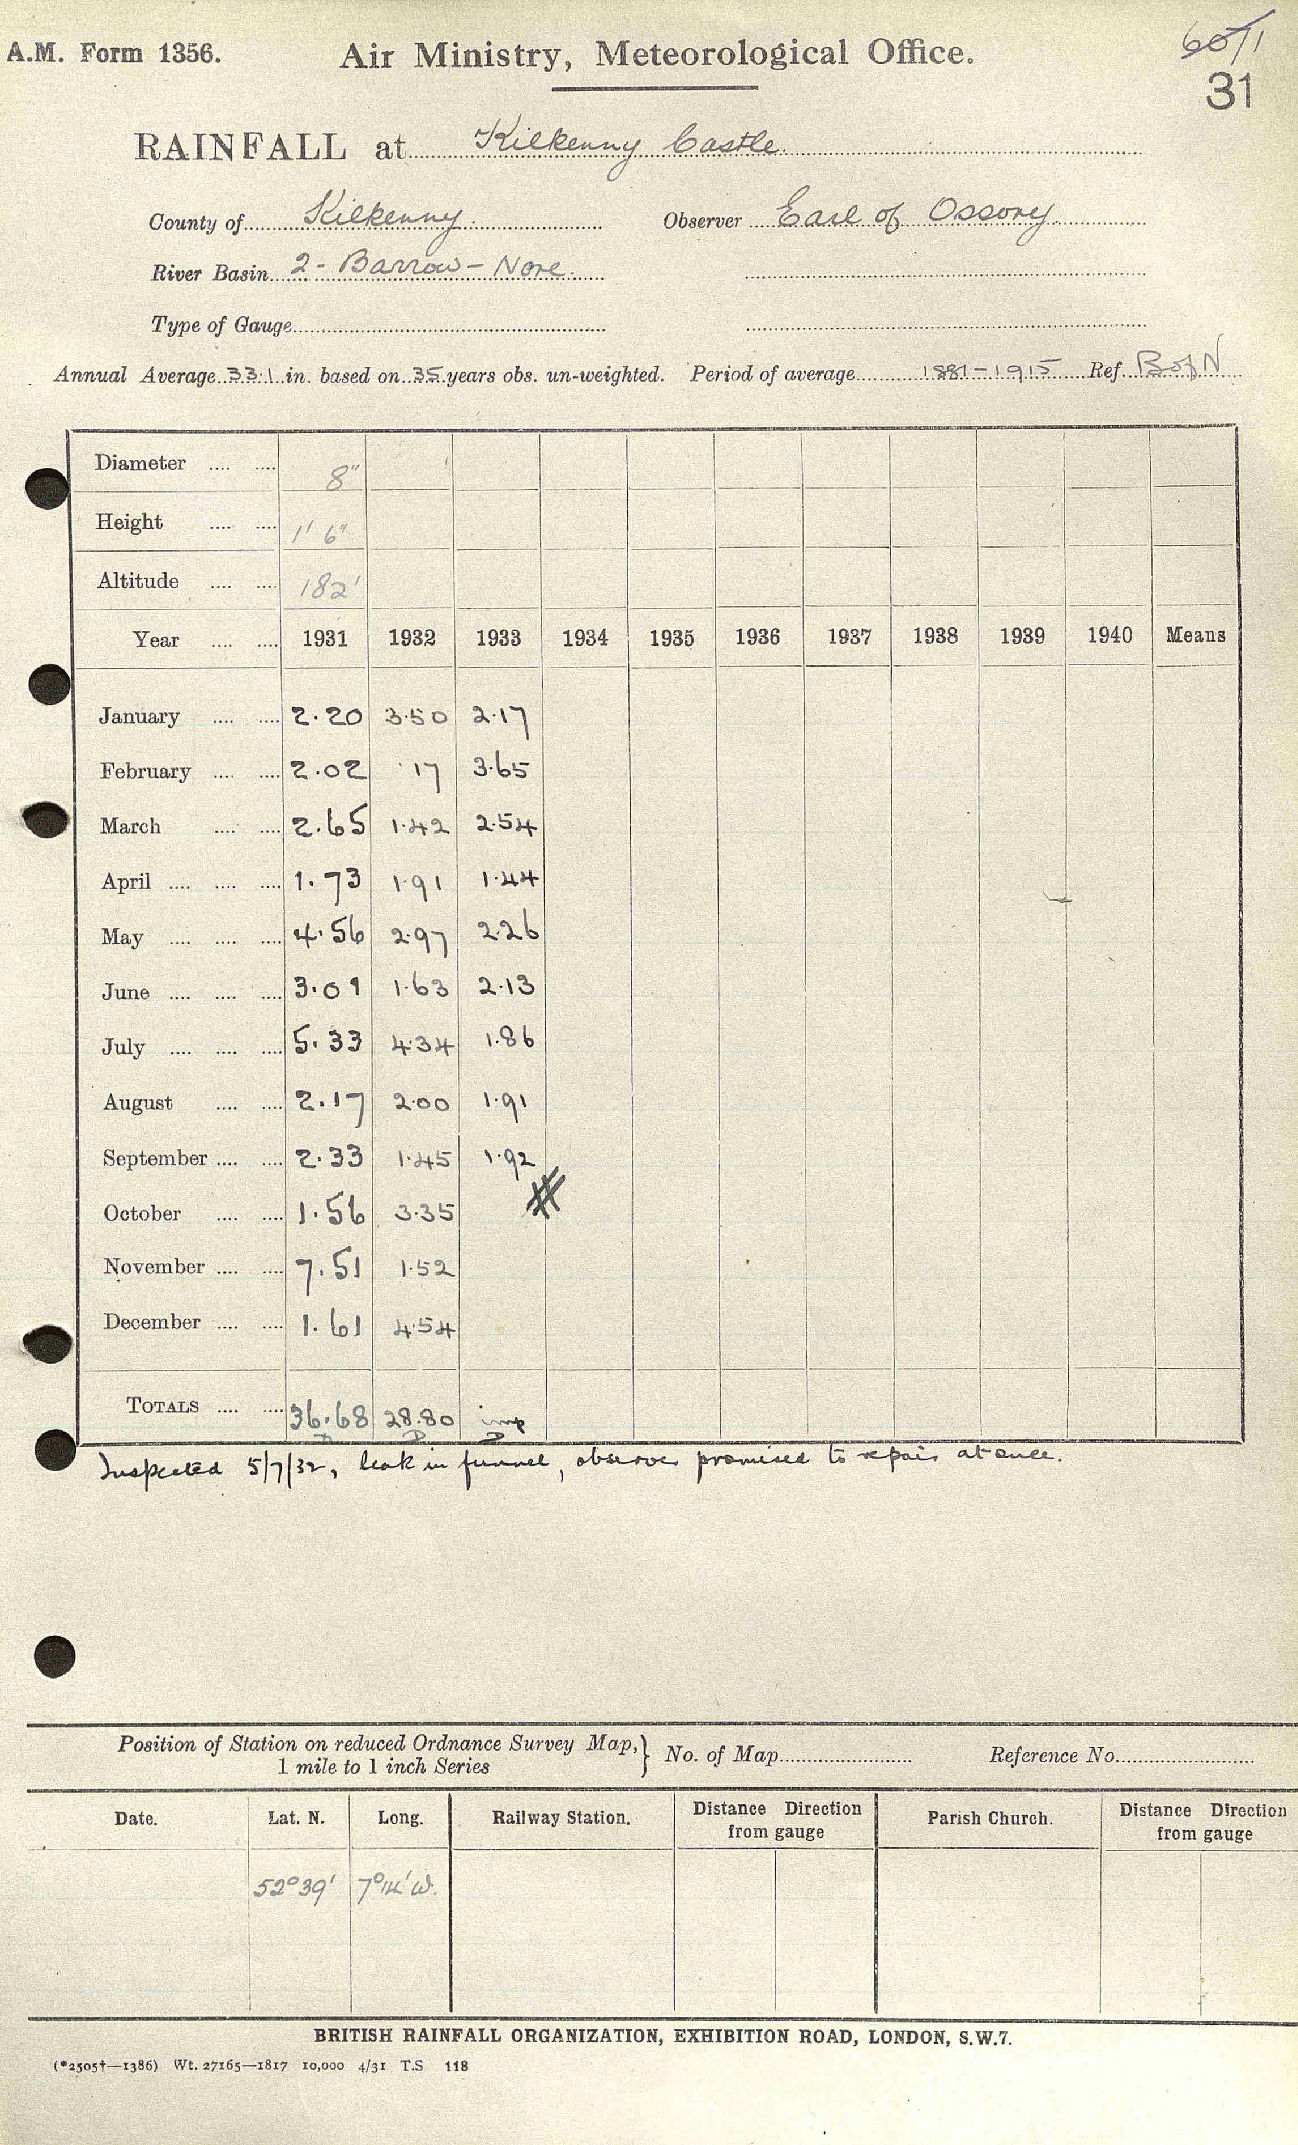 A.M. Form 1356. Air Ministry, Meteorological Office. 60/1
31
RAINFALL at Kilkenny Castle.
County of Kilkenny. Observer Earl of Ossory
River Basin 2 - Barrow - Nore.
Type of Gauge
Annual Average 33.1 in. based on 35 years obs. un-weighted. Period of average 1881-1915 Ref. B of N
Diameter .... .... 8"
Height .... .... 1' 6"
Altitude .... .... 182'
Year .... .... 1931 1932 1933 1934 1935 1936 1937 1938 1939 1940 Means
January .... .... 2.20 3.50 2.17
February .... .... 2.02 .17 3.65
March .... .... 2.65 1.42 2.54
April .... .... .... 1.73 1.91 1.44
May .... .... .... 4.56 2.97 2.26
June .... .... .... 3.01 1.63 2.13
July .... .... .... 5.33 4.34 1.86
August .... .... 2.17 2.00 1.91
September .... .... 2.33 1.45 1.92
October .... .... 1.56 3.35
November .... .... 7.51 1.52
December .... .... 1.61 4.54
TOTALS .... .... 36.68 28.80 imp
Inspected 5/7/32, leak in funnel, observer promised to repair at once.
Position of Station on reduced Ordnance Survey Map,} No. of Map Reference No.
1 mile to 1 inch Series
Date. Lat. N. Long. Railway Station. Distance Direction from gauge Parish Church. Distance Direction from gauge
52°39' 7°14' W.
BRITISH RAINFALL ORGANIZATION, EXHIBITION ROAD, LONDON, S.W.7.
(*2505†—1386) Wt. 27165—1817 10,000 4/31 T.S 118